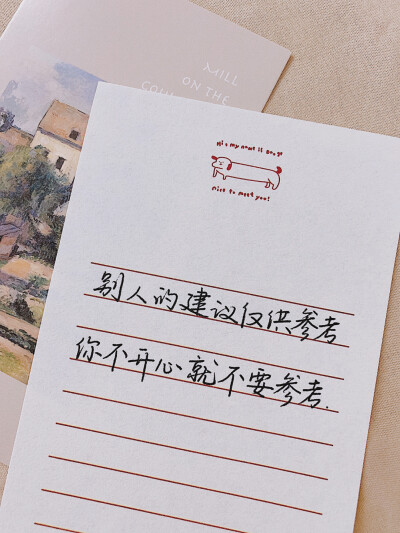 MILL
ON THE
Hi! my name is
nice to meet you!
别人的建议仅供参考
你不开心就不要参考.